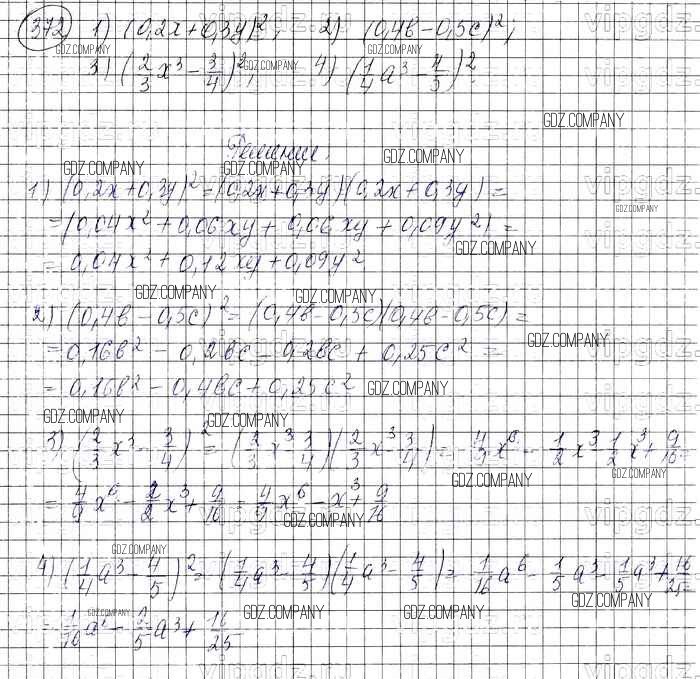 372) 1) (0,2x + 0,3y)²; 2) (0,4в - 0,5с)²;
3) (2/3 x³ - 3/4)²; 4) (1/4 a³ - 4/5)²
Решение.
1) (0,2x + 0,3y)² = (0,2x + 0,3y)(0,2x + 0,3y) =
= (0,04x² + 0,06xy + 0,06xy + 0,09y²) =
= 0,04x² + 0,12xy + 0,09y²
2) (0,4в - 0,5с)² = (0,4в - 0,5с)(0,4в - 0,5с) =
= 0,16в² - 0,2вс - 0,2вс + 0,25с² =
= 0,16в² - 0,4вс + 0,25с²
3) (2/3 x³ - 3/4)² = (2/3 x³ - 3/4)(2/3 x³ - 3/4) = 4/9 x⁶ - 1/2 x³ - 1/2 x³ + 9/16
= 4/9 x⁶ - 2/2 x³ + 9/16 = 4/9 x⁶ - x³ + 9/16
4) (1/4 a³ - 4/5)² = (1/4 a³ - 4/5)(1/4 a³ - 4/5) = 1/16 a⁶ - 1/5 a³ - 1/5 a³ + 16/25 =
= 1/16 a⁶ - 2/5 a³ + 16/25
GDZ.COMPANY
vipgdz.ru